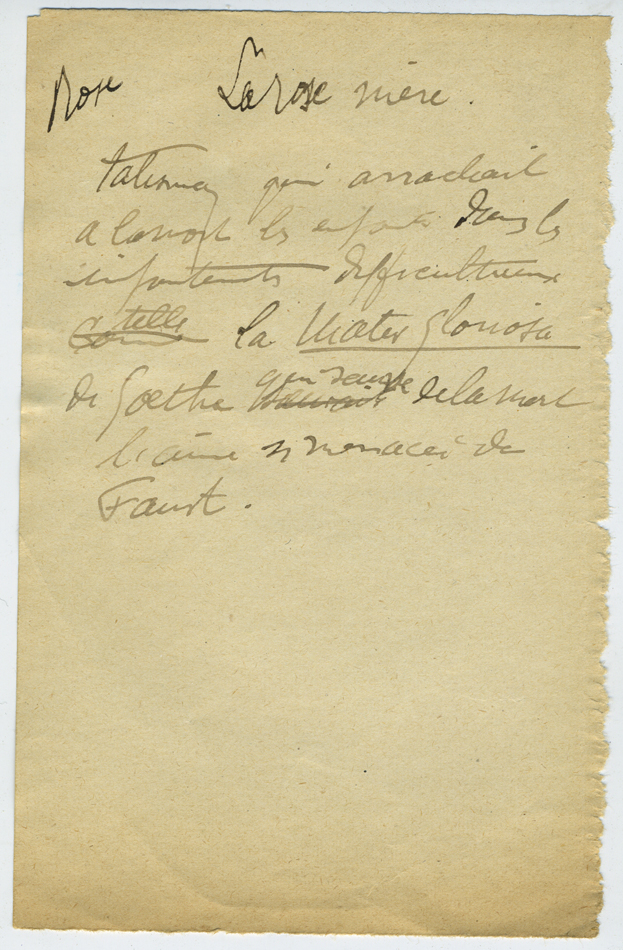 Rose La Rose mère.
talisman qui arrachait
a la mort les enfants dans les
enfantements difficultueux
Comme telle la Mater gloriosa
de Goethe sauvait qui sauve de la mort
l'âme si menacée de
Faust.